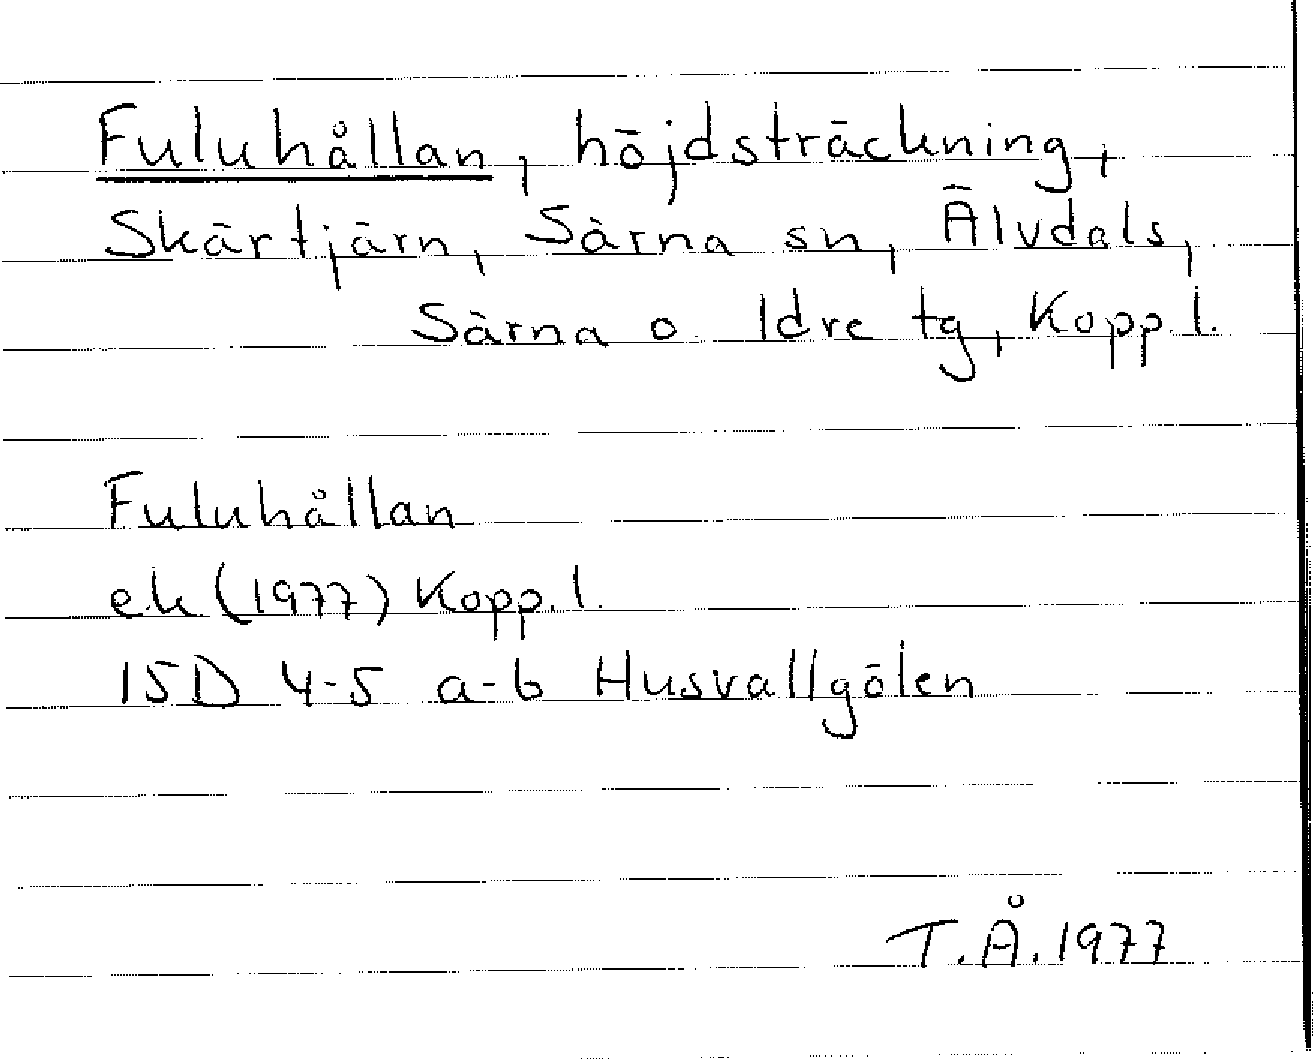 Fuluhållan, höjdsträckning,
Skärtjärn, Särna sn, Älvdals,
Särna o Idre tg, Kopp l.
Fuluhållan
ek (1977) Kopp. l.
15D 4-5 a-b Husvallgölen
T.Å. 1977